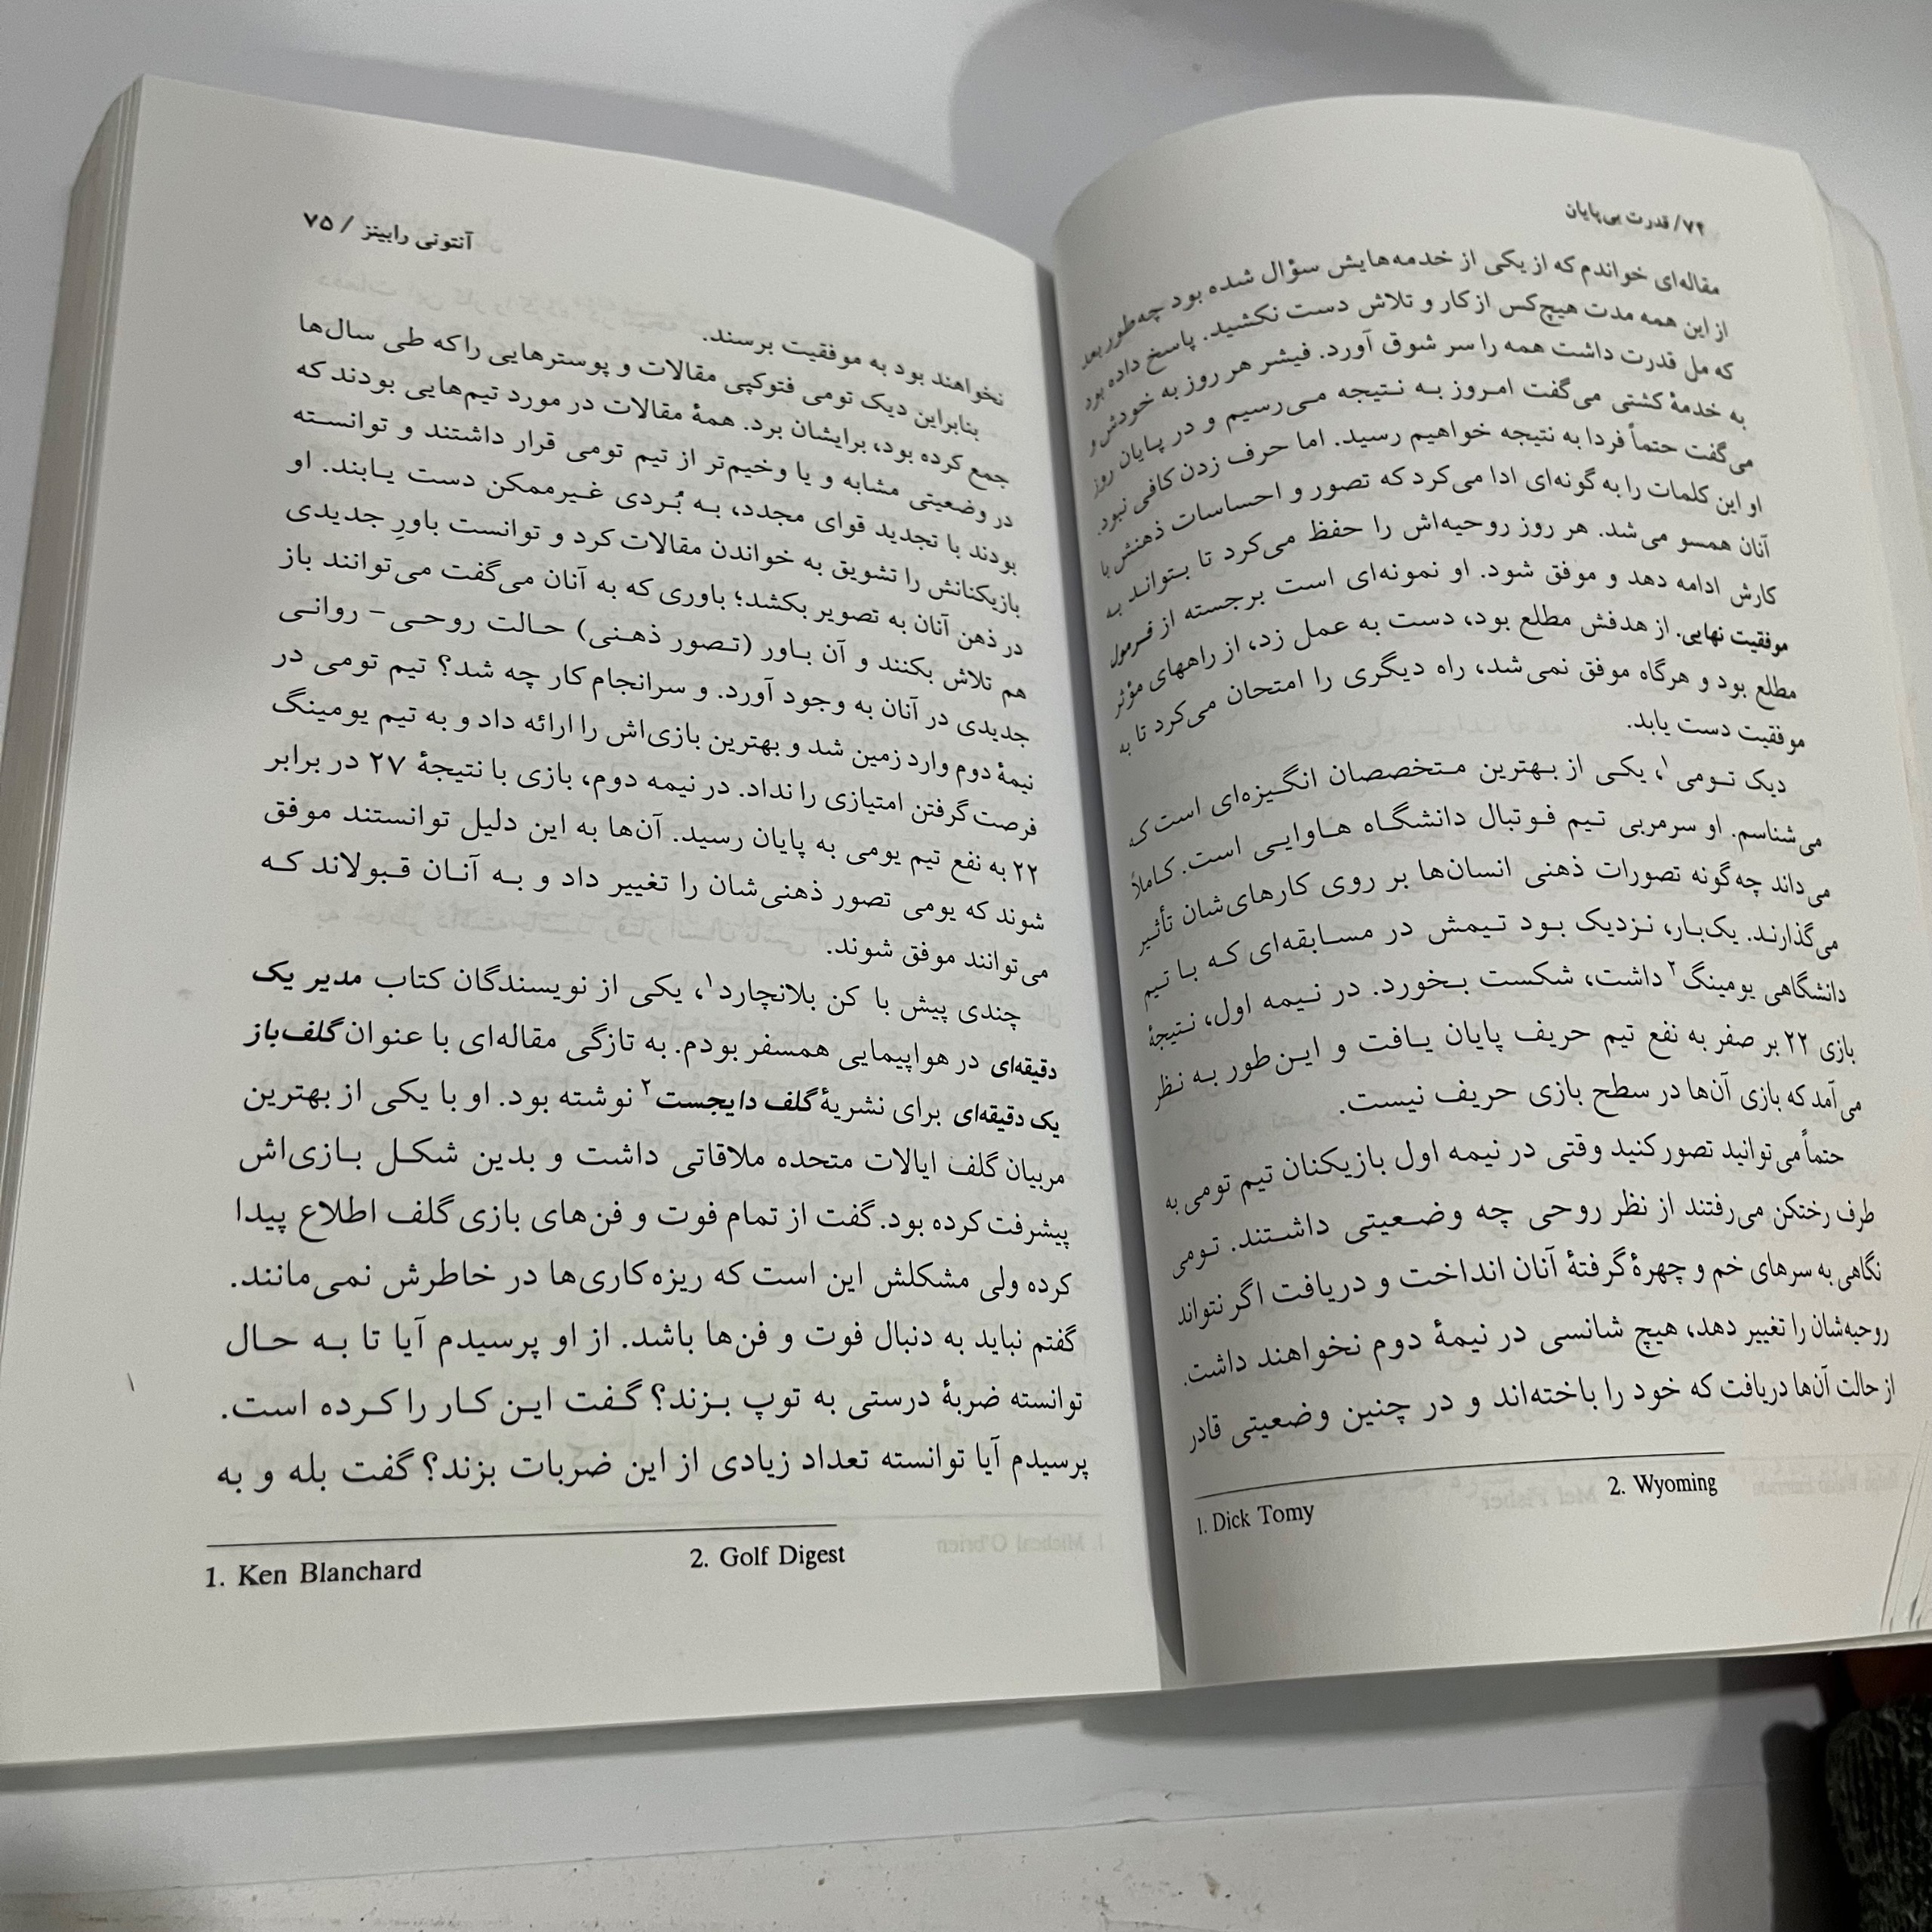 ۷۴/ قدرت بی‌پایان
مقاله‌ای خواندم که از یکی از خدمه‌هایش سؤال شده بود چه‌طور بعد
از این همه مدت هیچ‌کس از کار و تلاش دست نکشید. پاسخ داده بود
که مل قدرت داشت همه را سر شوق آورد. فیشر هر روز به خودش و
به خدمهٔ کشتی می‌گفت امروز به نتیجه می‌رسیم و در پایان روز
می‌گفت حتماً فردا به نتیجه خواهیم رسید. اما حرف زدن کافی نبود.
او این کلمات را به گونه‌ای ادا می‌کرد که تصور و احساسات ذهنش با
آنان همسو می‌شد. هر روز روحیه‌اش را حفظ می‌کرد تا بتواند به
کارش ادامه دهد و موفق شود. او نمونه‌ای است برجسته از فرمول
موفقیت نهایی. از هدفش مطلع بود، دست به عمل زد، از راههای مؤثر
مطلع بود و هرگاه موفق نمی‌شد، راه دیگری را امتحان می‌کرد تا به
موفقیت دست یابد.
دیک تومی۱، یکی از بهترین متخصصان انگیزه‌ای است که
می‌شناسم. او سرمربی تیم فوتبال دانشگاه هاوایی است. کاملاً
می‌داند چه‌گونه تصورات ذهنی انسان‌ها بر روی کارهای‌شان تأثیر
می‌گذارند. یک‌بار، نزدیک بود تیمش در مسابقه‌ای که با تیم
دانشگاهی یومینگ۲ داشت، شکست بخورد. در نیمه اول، نتیجهٔ
بازی ۲۲ بر صفر به نفع تیم حریف پایان یافت و این‌طور به نظر
می‌آمد که بازی آن‌ها در سطح بازی حریف نیست.
حتماً می‌توانید تصور کنید وقتی در نیمه اول بازیکنان تیم تومی به
طرف رختکن می‌رفتند از نظر روحی چه وضعیتی داشتند. تومی
نگاهی به سرهای خم و چهرهٔ گرفتهٔ آنان انداخت و دریافت اگر نتواند
روحیه‌شان را تغییر دهد، هیچ شانسی در نیمهٔ دوم نخواهند داشت.
از حالت آن‌ها دریافت که خود را باخته‌اند و در چنین وضعیتی قادر
1. Dick Tomy 2. Wyoming
آنتونی رابینز / ۷۵
نخواهند بود به موفقیت برسند.
بنابراین دیک تومی فتوکپی مقالات و پوسترهایی را که طی سال‌ها
جمع کرده بود، برایشان برد. همهٔ مقالات در مورد تیم‌هایی بودند که
در وضعیتی مشابه و یا وخیم‌تر از تیم تومی قرار داشتند و توانسته
بودند با تجدید قوای مجدد، به بُردی غیرممکن دست یابند. او
بازیکنانش را تشویق به خواندن مقالات کرد و توانست باورِ جدیدی
در ذهن آنان به تصویر بکشد؛ باوری که به آنان می‌گفت می‌توانند باز
هم تلاش بکنند و آن باور (تصور ذهنی) حالت روحی- روانی
جدیدی در آنان به وجود آورد. و سرانجام کار چه شد؟ تیم تومی در
نیمهٔ دوم وارد زمین شد و بهترین بازی‌اش را ارائه داد و به تیم یومینگ
فرصت گرفتن امتیازی را نداد. در نیمه دوم، بازی با نتیجهٔ ۲۷ در برابر
۲۲ به نفع تیم یومی به پایان رسید. آن‌ها به این دلیل توانستند موفق
شوند که یومی تصور ذهنی‌شان را تغییر داد و به آنان قبولاند که
می‌توانند موفق شوند.
چندی پیش با کن بلانچارد۱، یکی از نویسندگان کتاب مدیر یک
دقیقه‌ای در هواپیمایی همسفر بودم. به تازگی مقاله‌ای با عنوان گلف‌باز
یک دقیقه‌ای برای نشریهٔ گلف دایجست۲ نوشته بود. او با یکی از بهترین
مربیان گلف ایالات متحده ملاقاتی داشت و بدین شکل بازی‌اش
پیشرفت کرده بود. گفت از تمام فوت و فن‌های بازی گلف اطلاع پیدا
کرده ولی مشکلش این است که ریزه‌کاری‌ها در خاطرش نمی‌مانند.
گفتم نباید به دنبال فوت و فن‌ها باشد. از او پرسیدم آیا تا به حال
توانسته ضربهٔ درستی به توپ بزند؟ گفت این کار را کرده است.
پرسیدم آیا توانسته تعداد زیادی از این ضربات بزند؟ گفت بله و به
1. Ken Blanchard 2. Golf Digest